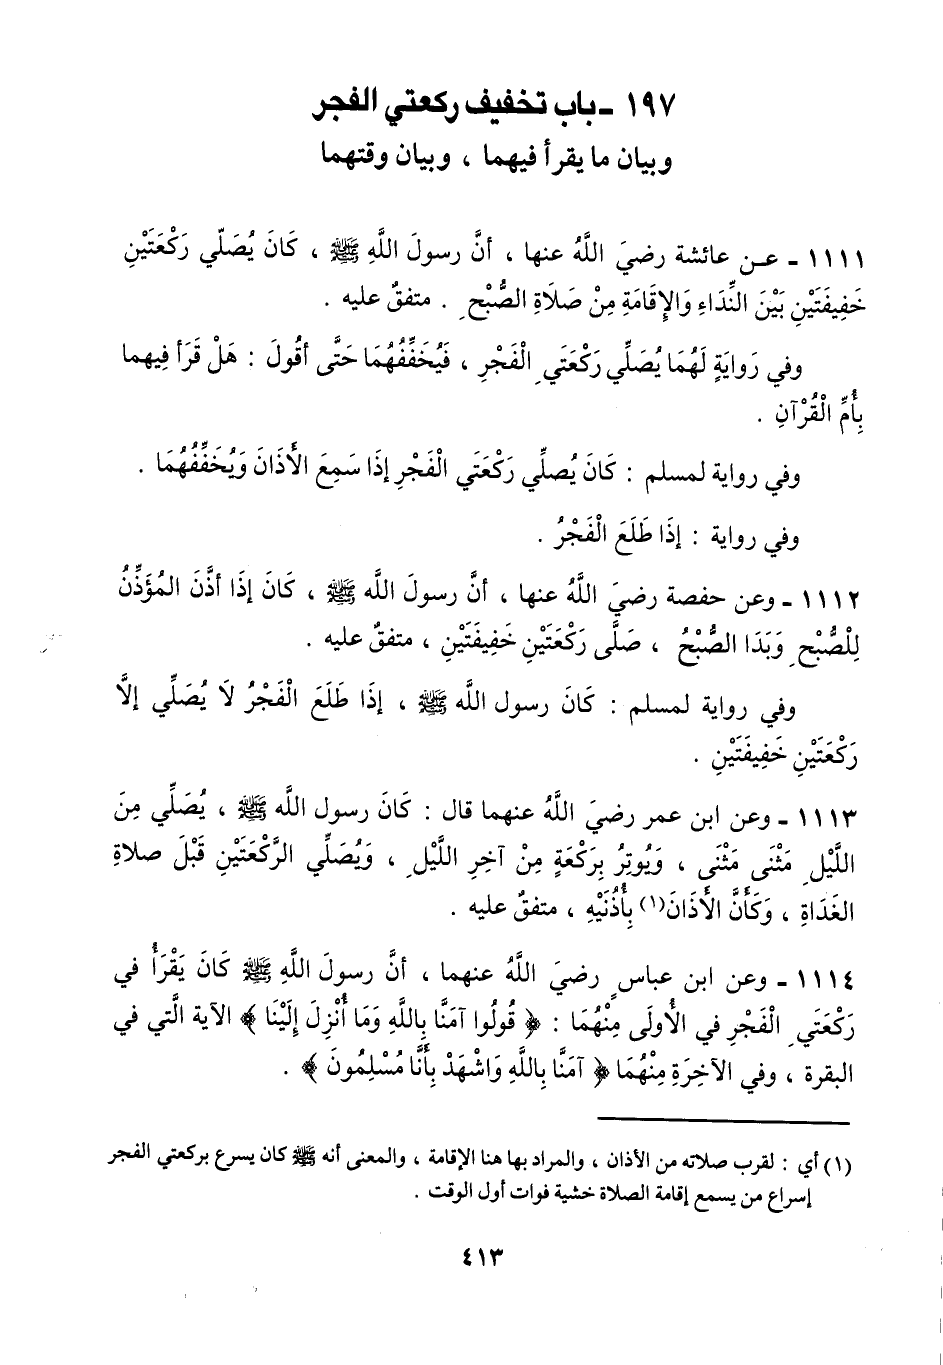 ١٩٧ ـ باب تخفيف ركعتي الفجر
وبيان ما يقرأ فيهما ، وبيان وقتهما
١١١١ ـ عـن عائشة رضيَ اللَّهُ عنها ، أنَّ رسولَ اللَّهِ ﷺ ، كَانَ يُصَلّي رَكْعَتَيْنِ
خَفِيفَتَيْنِ بَيْنَ النِّدَاءِ وَالإِقَامَةِ مِنْ صَلَاةِ الصُّبْحِ . متفقٌ عليه .
وفي رَوايَةٍ لَهُمَا يُصَلِّي رَكْعَتَي الْفَجْرِ ، فَيُخَفِّفُهُمَا حَتَّى أقُولَ : هَلْ قَرَأ فِيهما
بِأُمِّ الْقُرْآنِ .
وفي رواية لمسلم : كَانَ يُصلِّي رَكْعَتَي الْفَجْرِ إذَا سَمِعَ الأَذَانَ وَيُخَفِّفُهُمَا .
وفي رواية : إذَا طَلَعَ الْفَجْرُ .
١١١٢ ـ وعن حفصة رضيَ اللَّهُ عنها ، أنَّ رسولَ اللَّه ﷺ ، كَانَ إذَا أذَّنَ المُؤَذِّنُ
لِلْصُّبْحِ وَبَدَا الصُّبْحُ ، صَلَّى رَكْعَتَيْنِ خَفِيفَتَيْنِ ، متفقٌ عليه .
وفي رواية لمسلم : كَانَ رسول اللَّه ﷺ ، إذَا طَلَعَ الْفَجْرُ لَا يُصَلِّي إلَّا
رَكْعَتَيْنِ خَفِيفَتَيْنِ .
١١١٣ ـ وعن ابن عمر رضيَ اللَّهُ عنهما قال : كَانَ رسول اللَّه ﷺ ، يُصَلِّي مِنَ
اللَّيْلِ مَثْنَى مَثْنَى ، وَيُوتِرُ بِرَكْعَةٍ مِنْ آخِرِ اللَّيْلِ ، وَيُصَلِّي الرَّكْعَتَيْنِ قَبْلَ صلاةِ
الغَدَاةِ ، وَكَأَنَّ الأَذَانَ(١) بِأُذُنَيْهِ ، متفقٌ عليه .
١١١٤ ـ وعن ابن عباسٍ رضيَ اللَّهُ عنهما ، أنَّ رسولَ اللَّهِ ﷺ كَانَ يَقْرَأُ في
رَكْعَتَي الْفَجْرِ في الأُولَى مِنْهُمَا : ﴿ قُولُوا آمَنَّا بِاللَّهِ وَمَا أُنْزِلَ إلَيْنَا ﴾ الآية الَّتي في
البقرة ، وفي الآخِرَةِ مِنْهُمَا ﴿ آمَنَّا بِاللَّهِ وَاشْهَدْ بِأَنَّا مُسْلِمُونَ ﴾ .
(١) أي : لقرب صلاته من الأذان ، والمراد بها هنا الإقامة ، والمعنى أنه ﷺ كان يسرع بركعتي الفجر
إسراع من يسمع إقامة الصلاة خشية فوات أول الوقت .
٤١٣